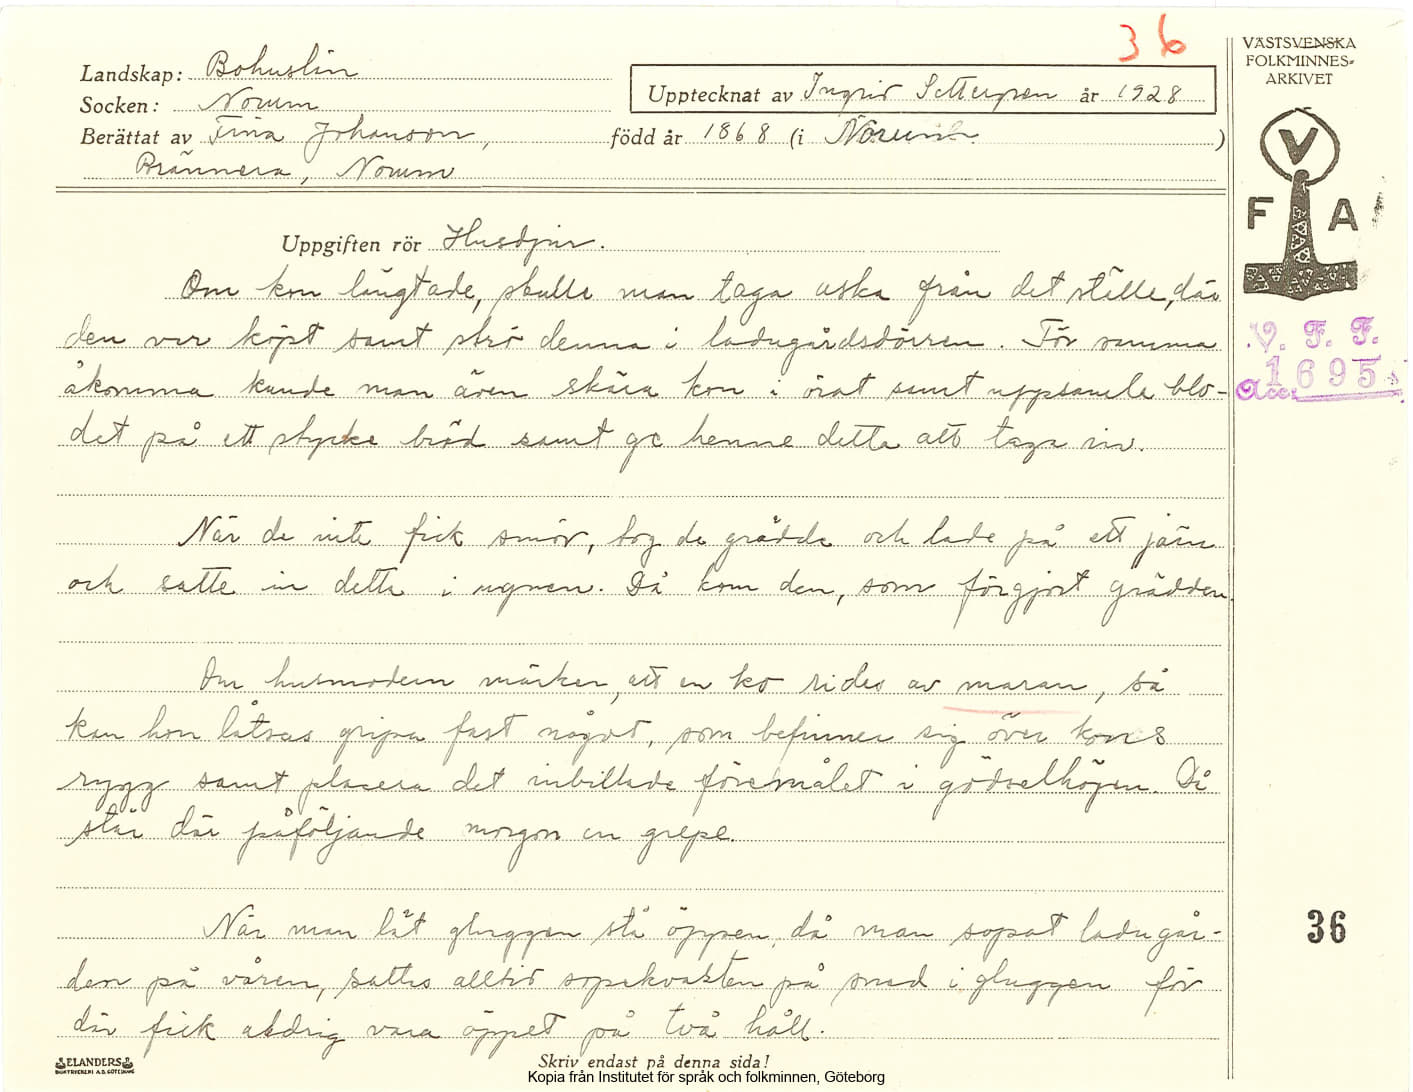 36
VÄSTSVENSKA
FOLKMINNES-
ARKIVET
Landskap: Bohuslän
Socken: Norum
Upptecknat av Ingrid Settergren år 1928
Berättat av Tina Johanson, född år 1868 (i Norum )
Brännera, Norum
V
F A
Uppgiften rör Husdjur.
Om kon längtade, skulle man taga aska från det ställe, där
den var köpt samt strö denna i ladugårdsdörren. För samma
åkomma kunde man även skära kon i örat samt uppsamla blo-
det på ett stycke bröd samt ge henne detta att taga in.
V. F. F.
Acc. 1695
När de inte fick smör, tog de grädde och lade på ett järn
och satte in detta i ugnen. Då kom den, som förgjort grädden.
Om husmodern märker, att en ko rides av maran, så
kan hon låtsas gripa fast något, som befinner sig över kons
rygg samt placera det inbillade föremålet i gödselhögen. Då
står där påföljande morgon en grepe.
36
När man lät gluggen stå öppen, då man sopat ladugår-
den på våren, sattes alltid sopekvasten på snad i gluggen för
där fick aldrig vara öppet på två håll.
ELANDERS
BOKTRYCKERI A.B. GÖTEBORG
Skriv endast på denna sida!
Kopia från Institutet för språk och folkminnen, Göteborg